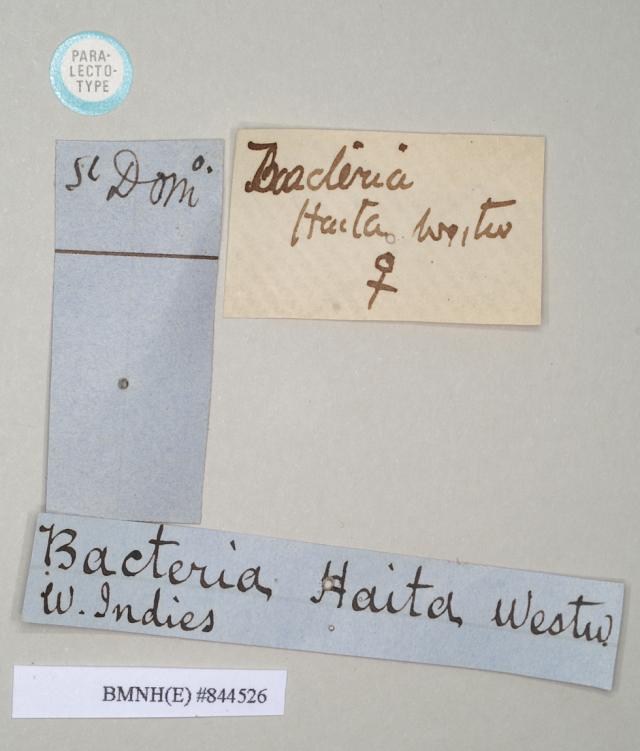 PARA-
LECTO-
TYPE
St Domo.
Bacteria
Haita Westw
♀
Bacteria Haita Westw.
W. Indies
BMNH(E) #844526